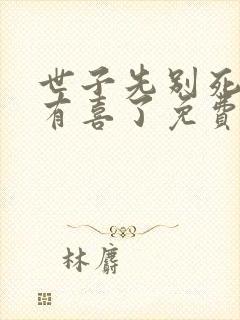 世子先别死
有喜了免费
林麝